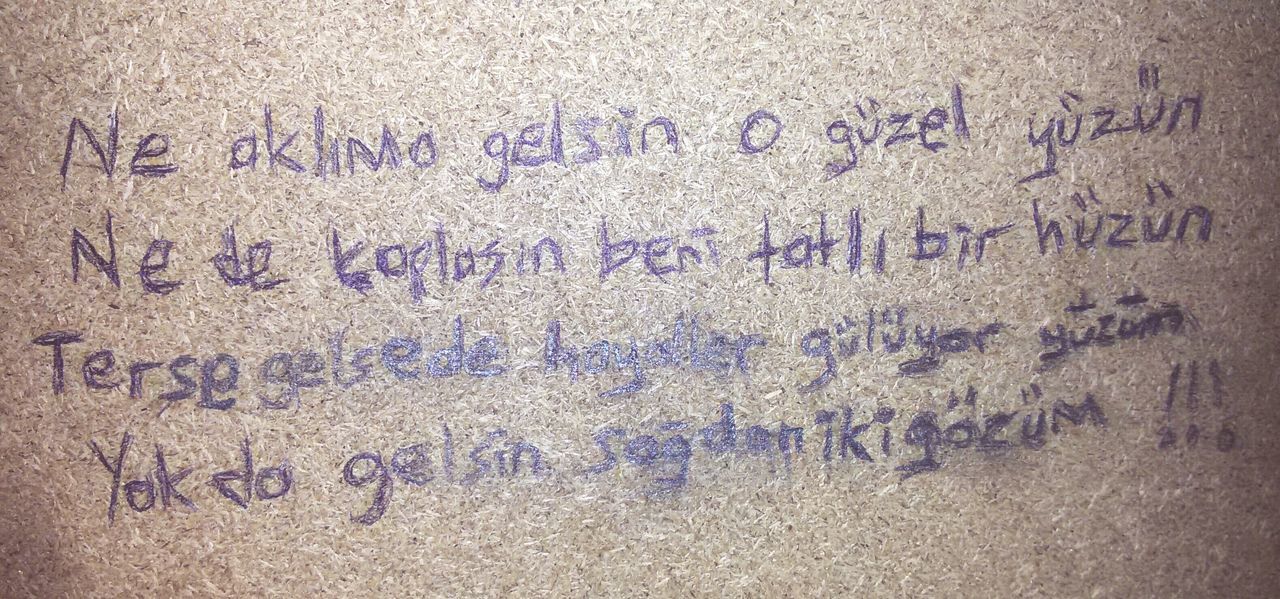 Ne aklıma gelsin o güzel yüzün
Ne de kaplasın beni tatlı bir hüzün
Terse gelsede hayaller gülüyor yüzüm
Yak da gelsin sağdan iki gözüm !!!